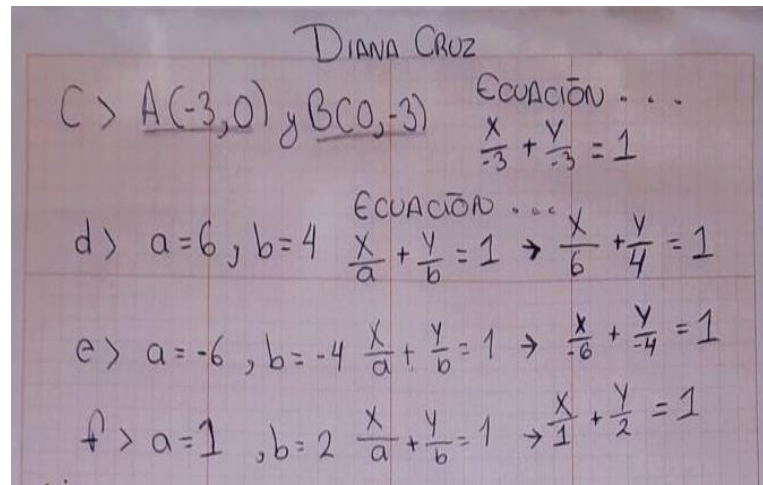 DIANA CRUZ
C> A(-3,0) y B(0,-3) ECUACIÓN...
x/-3 + y/-3 = 1
ECUACIÓN...
d> a=6, b=4 x/a + y/b = 1 → x/6 + y/4 = 1
e> a=-6, b=-4 x/a + y/b = 1 → x/-6 + y/-4 = 1
f> a=1, b=2 x/a + y/b = 1 → x/1 + y/2 = 1